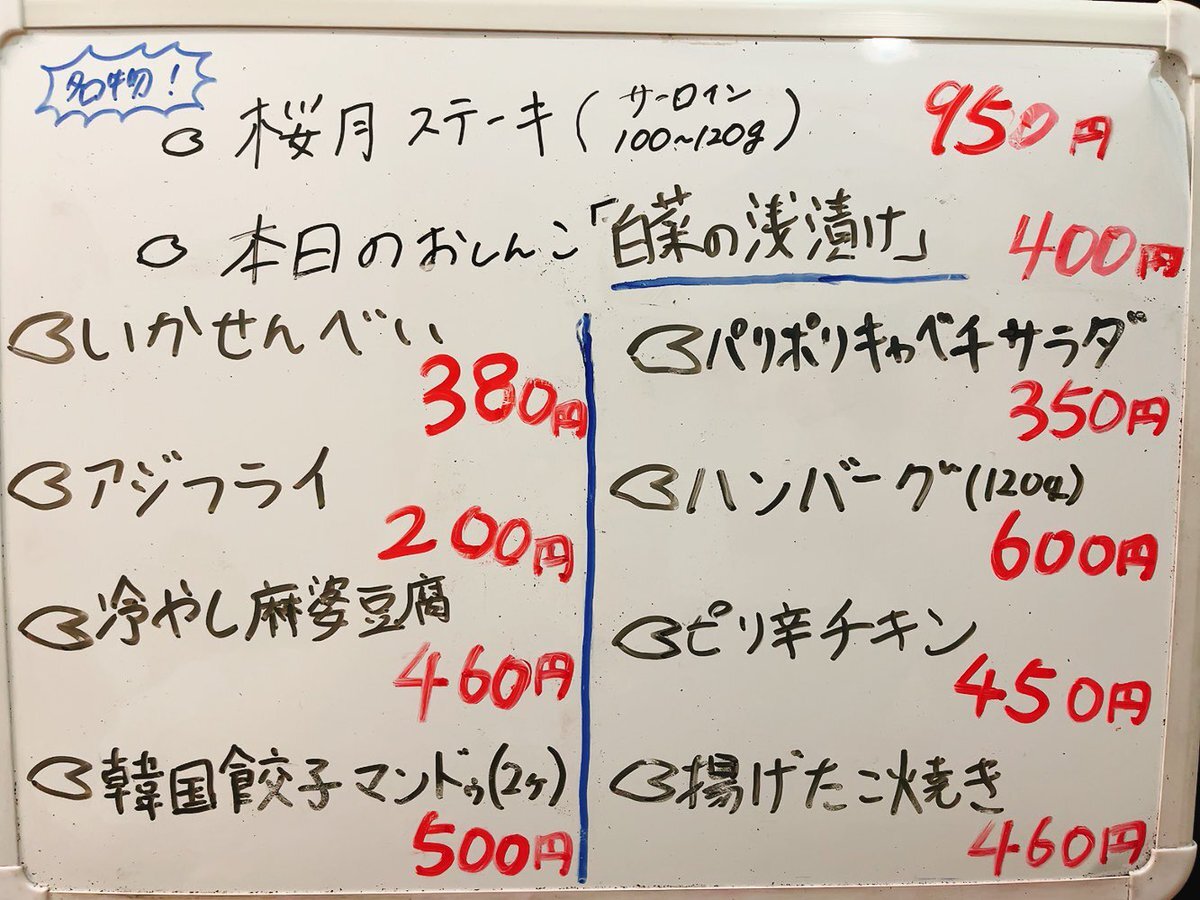 名物！
桜月ステーキ(サーロイン 100~120g) 950円
本日のおしんこ「白菜の浅漬け」 400円
いかせんべい
380円
アジフライ
200円
冷やし麻婆豆腐
460円
韓国餃子マンドゥ(2ヶ)
500円
パリポリキャベチサラダ
350円
ハンバーグ(120g)
600円
ピリ辛チキン
450円
揚げたこ焼き
460円